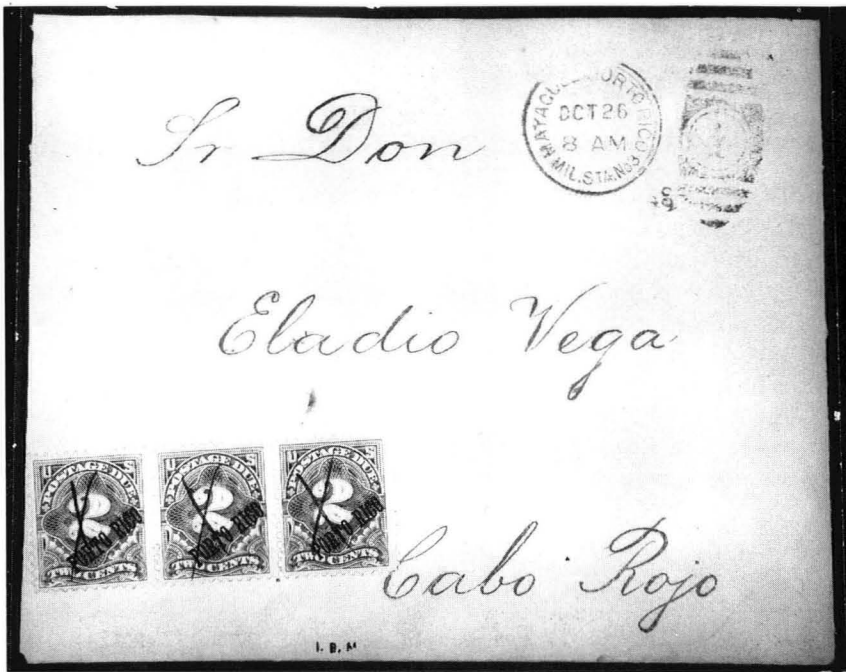 MAYAGUEZ PORTO RICO
OCT 26
8 AM
MIL. STA. No 3
Sr Don
Eladio Vega
U S
POSTAGE DUE
2
PORTO RICO
TWO CENTS
U S
POSTAGE DUE
2
PORTO RICO
TWO CENTS
U S
POSTAGE DUE
2
PORTO RICO
TWO CENTS
Cabo Rojo
I. B. M